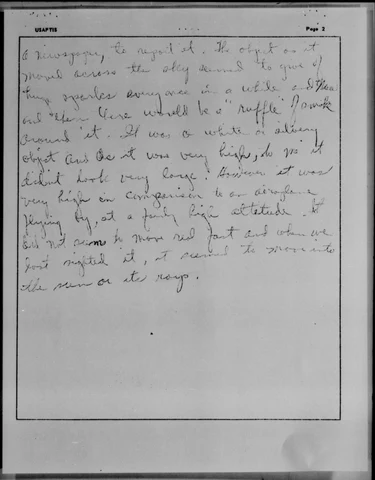 USAPTIS Page 2
a newspaper, to report it. The object as it
moved across the sky seemed to give of
sparks every once in a while and
then there would be a "ruffle" of smoke
around it. It was a white or silvery
object and as it was very high, to me it
didn't look very large. However it was
very high in comparison to an airplane
flying by, at a fairly high altitude. It
did not seem to move real fast and when we
last sighted it, it seemed to move into
the sun or its rays.